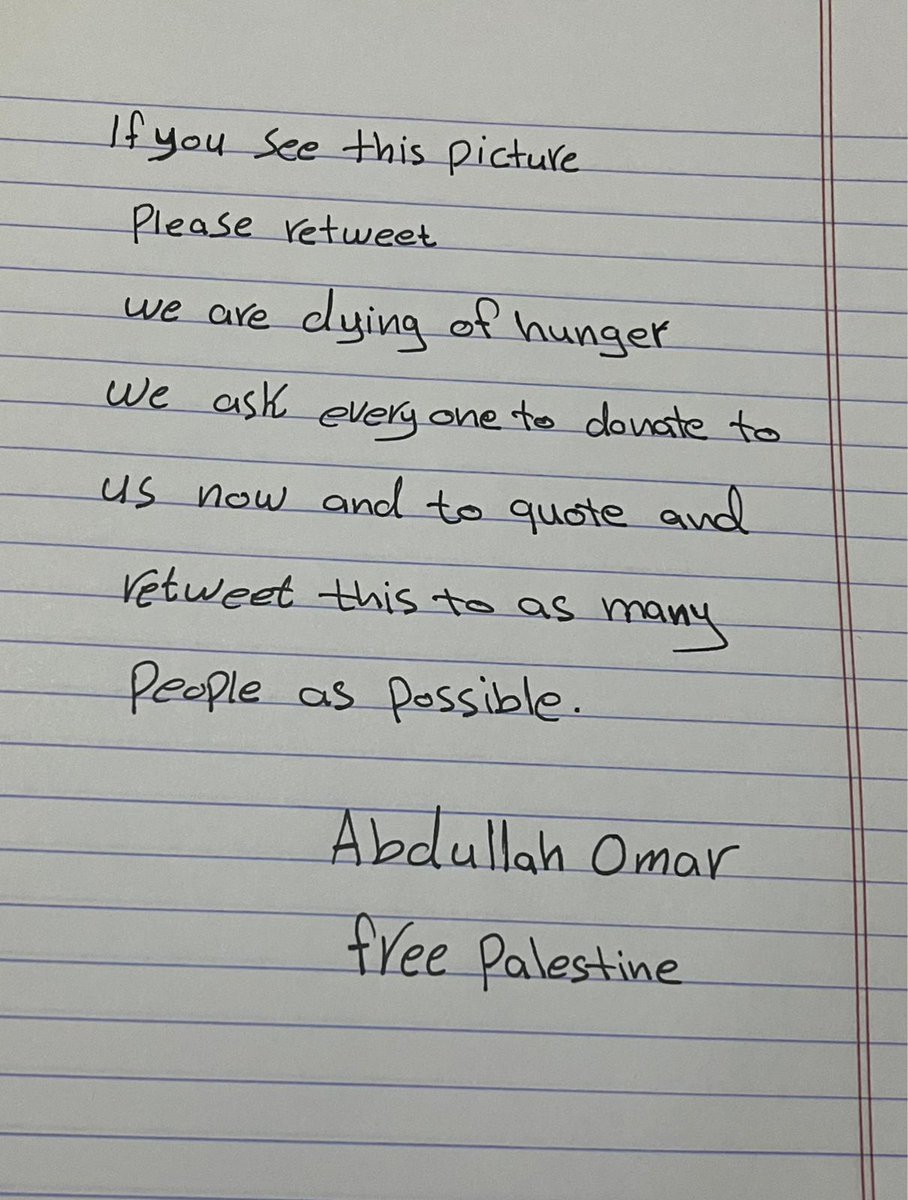 If you see this picture
Please retweet
we are dying of hunger
we ask everyone to donate to
us now and to quote and
retweet this to as many
People as possible.
Abdullah Omar
free Palestine